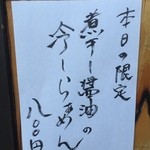 本日の限定
煮干し醤油の
冷しらぁめん
八〇〇円